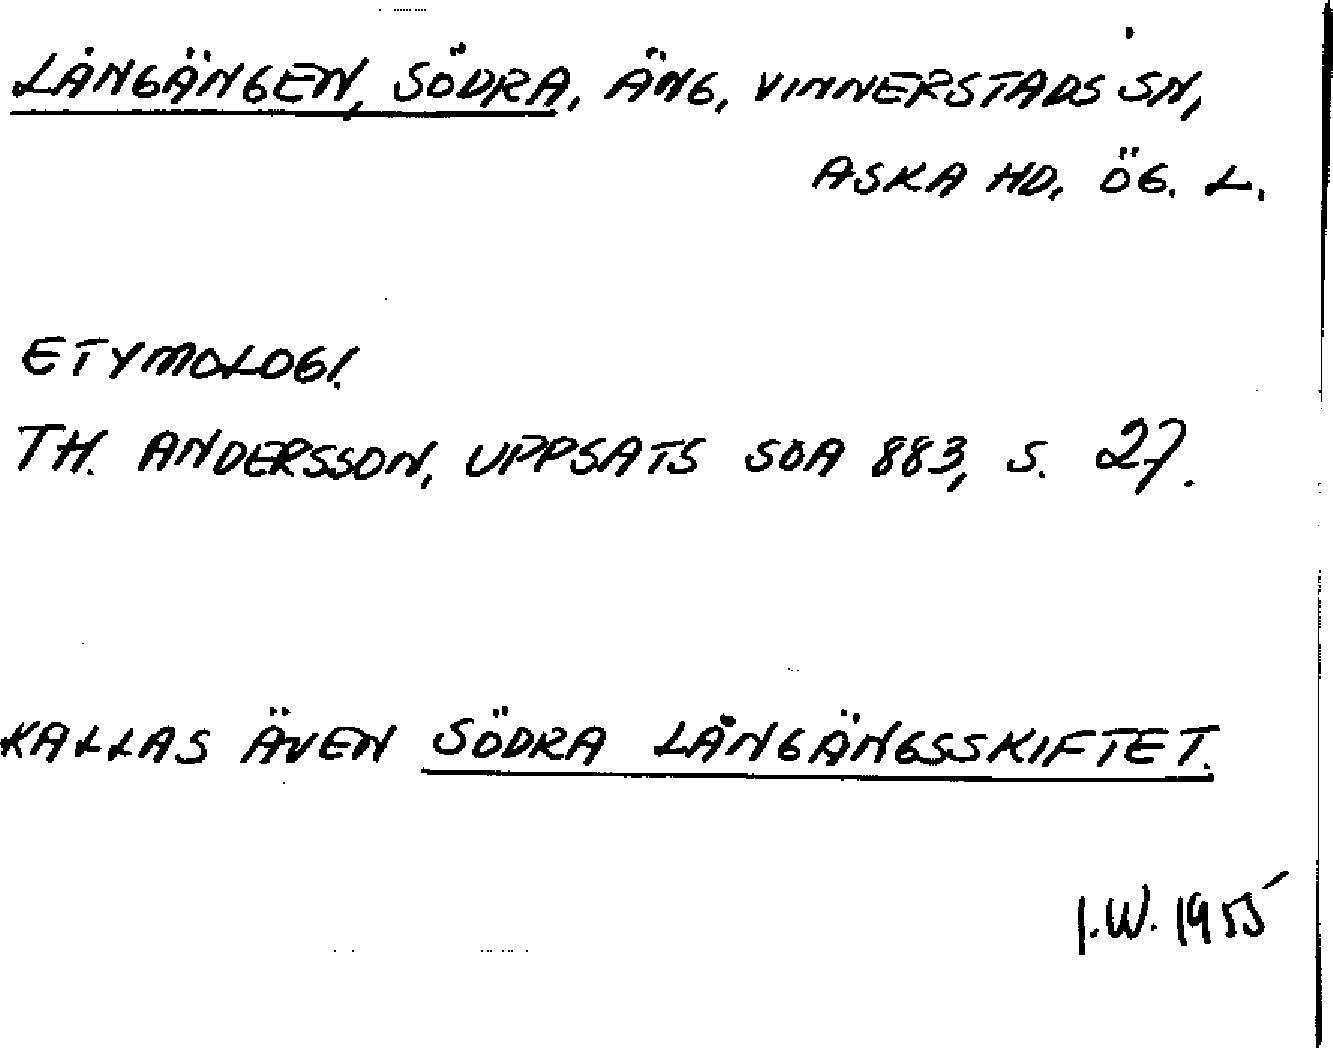 LÅNGÄNGEN, SÖDRA, ÄNG, VINNERSTADS SN,
ASKA HD, ÖG. L.
ETYMOLOGI.
TH. ANDERSSON, UPPSATS SOA 883, S. 27.
KALLAS ÄVEN SÖDRA LÅNGÄNGSSKIFTET.
I.W. 1955